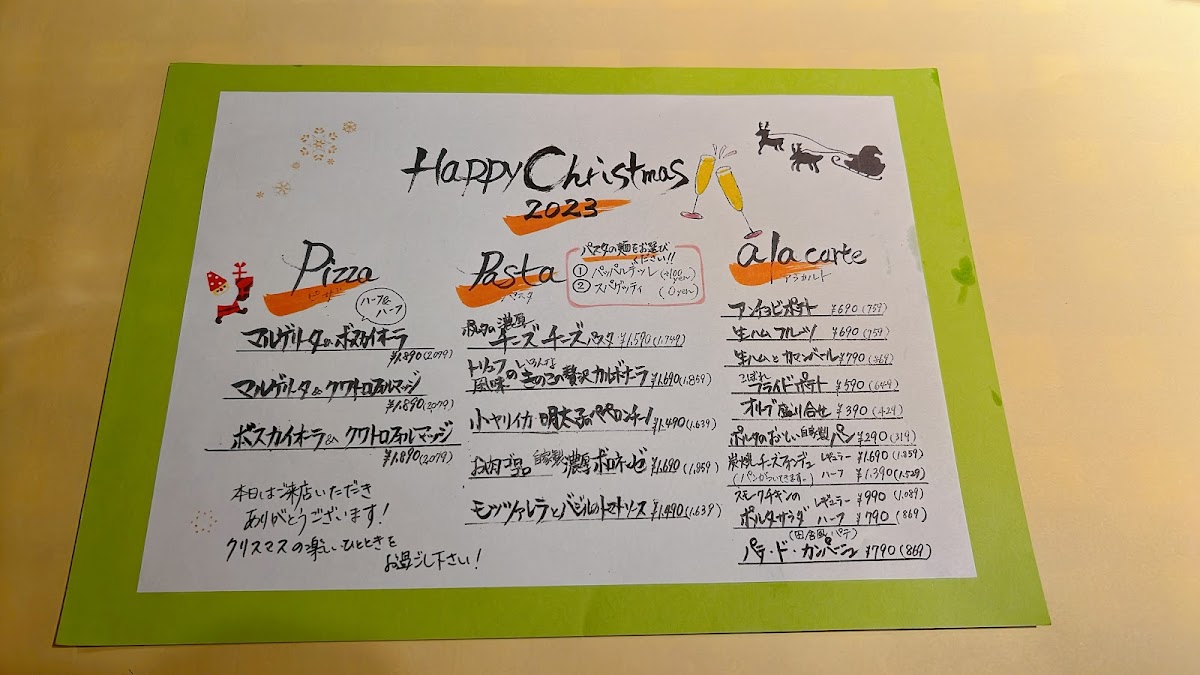 Happy Christmas
2023
Pizza
ピッツァ
ハーフ&
ハーフ
マルゲリータ & ボスカイオーラ
¥1.890(2079)
マルゲリータ & クワトロフォルマッジ
¥1.890(2079)
ボスカイオーラ & クワトロフォルマッジ
¥1.890(2079)
本日はご来店いただき
ありがとうございます!
クリスマスの楽しいひとときを
お過ごし下さい!
Pasta
パスタ
パスタの麺をお選び
ください!!
① パッパルデッレ (+100yen)
② スパゲッティ (0yen)
ポルタの濃厚
チーズチーズパスタ ¥1.590(1.749)
トリュフの いろんな
風味の きのこの贅沢カルボナーラ ¥1.690(1.859)
小ヤリイカ 明太子のペペロンチーノ ¥1.490(1.639)
お肉ゴロゴロ 自家製 濃厚ボロネーゼ ¥1.690(1.859)
モッツァレラとバジルのトマトソース ¥1.490(1.639)
a la carte
アラカルト
アンチョビポテト ¥690(759)
生ハムフルーツ ¥690(759)
生ハムとカマンベール ¥790(869)
こぼれ
フライドポテト ¥590(649)
オリーブ盛り合せ ¥390(429)
ポルタのおいしい自家製パン ¥290(319)
炭焼チーズフォンデュ レギュラー ¥1.690(1.859)
(パンがついてきます〜) ハーフ ¥1.390(1.529)
スモークチキンの レギュラー ¥990(1.089)
ポルタサラダ ハーフ ¥790(869)
(田舎風パテ)
パテ・ド・カンパーニュ ¥790(869)